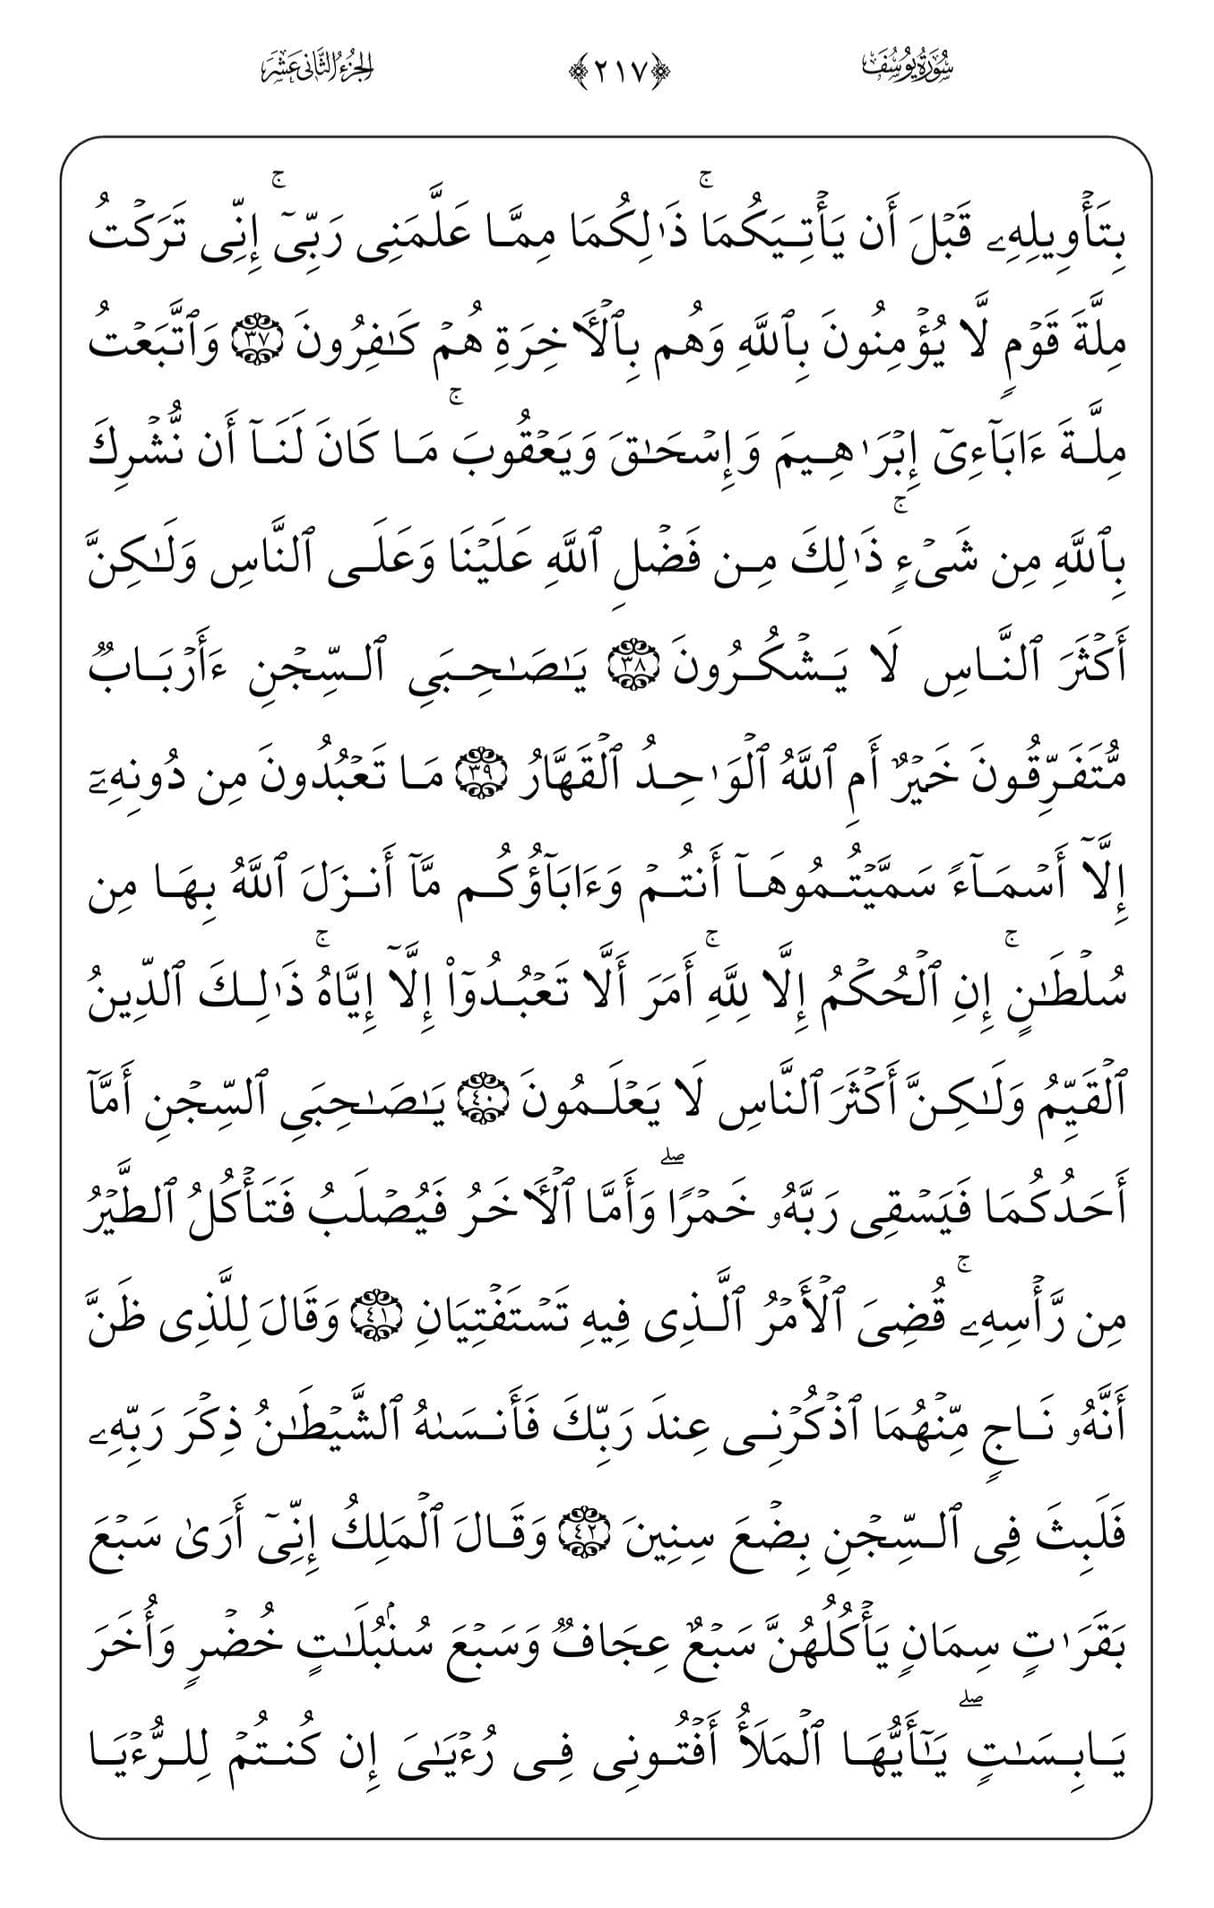 سُورَةُ يُوسُفَ ﴿٢١٧﴾ الجُزْءُ الثَّانِي عَشَرَ
بِتَأۡوِيلِهِۦ قَبۡلَ أَن يَأۡتِيَكُمَاۚ ذَٰلِكُمَا مِمَّا عَلَّمَنِى رَبِّىٓۚ إِنِّى تَرَكۡتُ
مِلَّةَ قَوۡمٍ لَّا يُؤۡمِنُونَ بِٱللَّهِ وَهُم بِٱلۡأَخِرَةِ هُمۡ كَـٰفِرُونَ ٣٧ وَٱتَّبَعۡتُ
مِلَّةَ ءَابَآءِىٓ إِبۡرَٰهِيمَ وَإِسۡحَـٰقَ وَيَعۡقُوبَۚ مَا كَانَ لَنَآ أَن نُّشۡرِكَ
بِٱللَّهِ مِن شَىۡءٍۚ ذَٰلِكَ مِن فَضۡلِ ٱللَّهِ عَلَيۡنَا وَعَلَى ٱلنَّاسِ وَلَـٰكِنَّ
أَكۡثَرَ ٱلنَّاسِ لَا يَشۡكُرُونَ ٣٨ يَـٰصَـٰحِبَىِ ٱلسِّجۡنِ ءَأَرۡبَابٌ
مُّتَفَرِّقُونَ خَيۡرٌ أَمِ ٱللَّهُ ٱلۡوَٰحِدُ ٱلۡقَهَّارُ ٣٩ مَا تَعۡبُدُونَ مِن دُونِهِۦٓ
إِلَّآ أَسۡمَآءً سَمَّيۡتُمُوهَآ أَنتُمۡ وَءَابَآؤُكُم مَّآ أَنزَلَ ٱللَّهُ بِهَا مِن
سُلۡطَـٰنٍۚ إِنِ ٱلۡحُكۡمُ إِلَّا لِلَّهِۚ أَمَرَ أَلَّا تَعۡبُدُوٓاْ إِلَّآ إِيَّاهُۚ ذَٰلِكَ ٱلدِّينُ
ٱلۡقَيِّمُ وَلَـٰكِنَّ أَكۡثَرَ ٱلنَّاسِ لَا يَعۡلَمُونَ ٤٠ يَـٰصَـٰحِبَىِ ٱلسِّجۡنِ أَمَّآ
أَحَدُكُمَا فَيَسۡقِى رَبَّهُۥ خَمۡرًاۖ وَأَمَّا ٱلۡأَخَرُ فَيُصۡلَبُ فَتَأۡكُلُ ٱلطَّيۡرُ
مِن رَّأۡسِهِۦۚ قُضِىَ ٱلۡأَمۡرُ ٱلَّذِى فِيهِ تَسۡتَفۡتِيَانِ ٤١ وَقَالَ لِلَّذِى ظَنَّ
أَنَّهُۥ نَاجٍ مِّنۡهُمَا ٱذۡكُرۡنِى عِندَ رَبِّكَ فَأَنسَىٰهُ ٱلشَّيۡطَـٰنُ ذِكۡرَ رَبِّهِۦ
فَلَبِثَ فِى ٱلسِّجۡنِ بِضۡعَ سِنِينَ ٤٢ وَقَالَ ٱلۡمَلِكُ إِنِّىٓ أَرَىٰ سَبۡعَ
بَقَرَٰتٍ سِمَانٍ يَأۡكُلُهُنَّ سَبۡعٌ عِجَافٌ وَسَبۡعَ سُنۢبُلَـٰتٍ خُضۡرٍ وَأُخَرَ
يَابِسَـٰتٍۖ يَـٰٓأَيُّهَا ٱلۡمَلَأُ أَفۡتُونِى فِى رُءۡيَـٰىَ إِن كُنتُمۡ لِلرُّءۡيَا